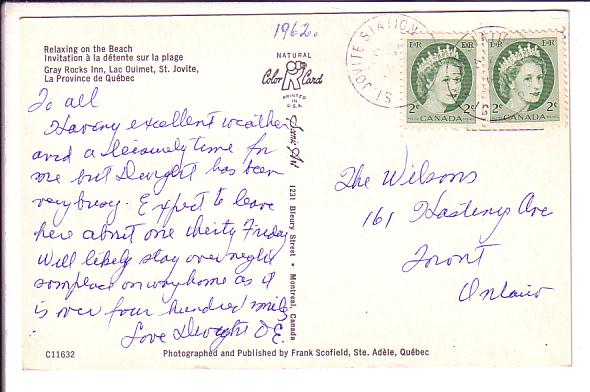 1962.
Relaxing on the Beach
Invitation à la détente sur la plage
Gray Rocks Inn, Lac Ouimet, St. Jovite,
La Province de Québec
NATURAL
Color Card
PRINTED
IN
U.S.A.
ST. JOVITE STATION
E II R
E II R
2c
2c
CANADA
CANADA
To all
Having excellent weather
and a leisurely time for
me but Dwight has been
very busy. Expect to leave
here about one thirty Friday
Will likely stay overnight
someplace on way home as it
is over four hundred miles
Love Dwight
1231 Bleury Street • Montreal, Canada
The Wilsons
161 Hastings Ave
Toront
Ontario
C11632
Photographed and Published by Frank Scofield, Ste. Adèle, Québec